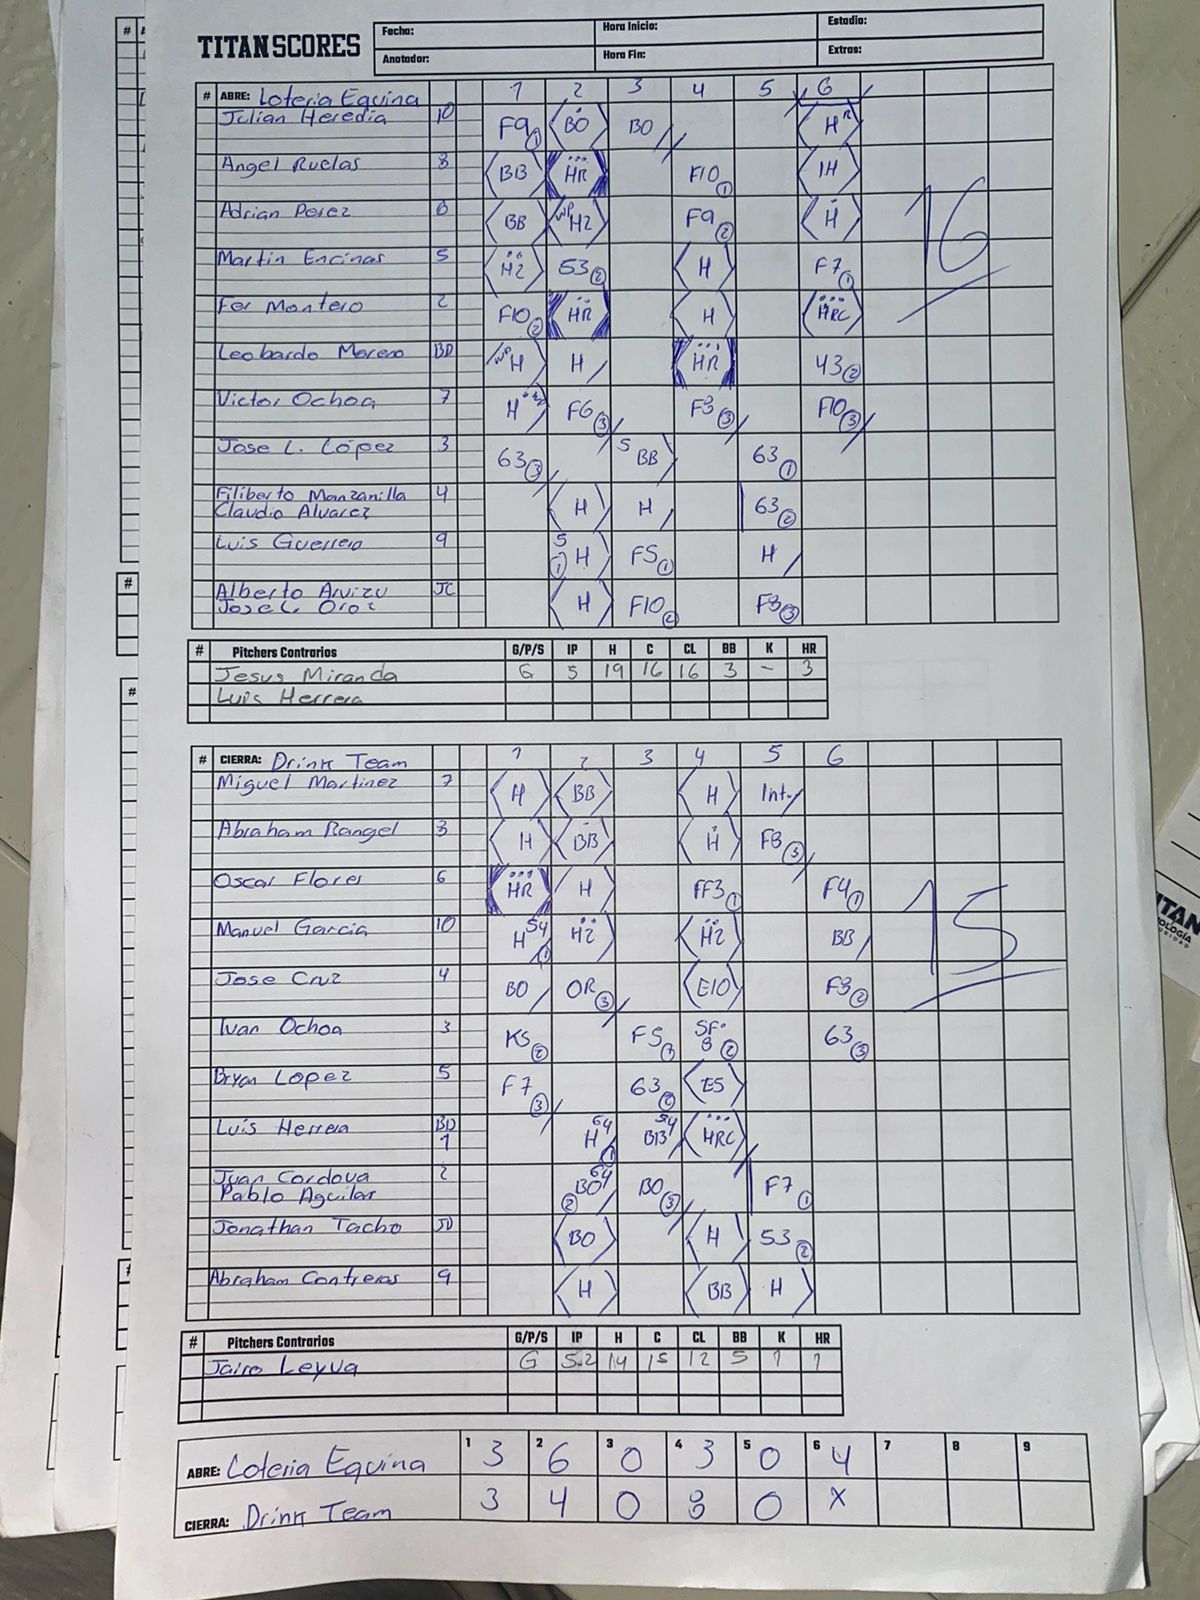 TITAN SCORES
Fecha: Hora Inicio: Estadio:
Anotador: Hora Fin: Extras:
# ABRE: Loteria Equina 1 2 3 4 5 6
Julian Heredia 10 F9 1 BO BO H R
Angel Ruelas 8 BB HR F10 1 IH
Adrian Perez 6 BB WP H2 F9 2 H
Martin Encinas 5 H2 53 2 H F7 1
Fer Montero 2 F10 2 HR H HRC
Leobardo Moreno BD WP H H HR 43 2
Victor Ochoa 7 H F6 3 F8 3 F10 3
Jose L. López 3 63 3 5 BB 63 1
Filiberto Manzanilla 4 H H 63 2
Claudio Alvarez
Luis Guerrero 9 5 1 H F5 1 H
Alberto Arvizu JC H F10 2 F8 3
Jose L. Oroz
16
# Pitchers Contrarios G/P/S IP H C CL BB K HR
Jesus Miranda G 5 19 16 16 3 - 3
Luis Herrera
# CIERRA: Drink Team 1 2 3 4 5 6
Miguel Martinez 7 H BB H Int
Abraham Rangel 3 H BB H F8 3
Oscar Flores 6 HR H FF3 1 F4 1
Manuel Garcia 10 H 54 1 H2 H2 BB
Jose Cruz 4 BO OR 3 E10 F8 2
Ivan Ochoa 3 KS 2 F5 1 SF 8 2 63 3
Bryan Lopez 5 F7 3 63 2 E5
Luis Herrera BD 1 H 64 1 BB 54 HRC
Juan Cordova 2 BO 64 2 BO 3 F7 1
Pablo Aguilar
Jonathan Tacho JD BO H 53 2
Abraham Contreras 9 H BB H
15
# Pitchers Contrarios G/P/S IP H C CL BB K HR
Jairo Leyva G 5.2 14 15 12 5 1 1
1 2 3 4 5 6 7 8 9
ABRE: Loteria Equina 3 6 0 3 0 4
CIERRA: Drink Team 3 4 0 8 0 X